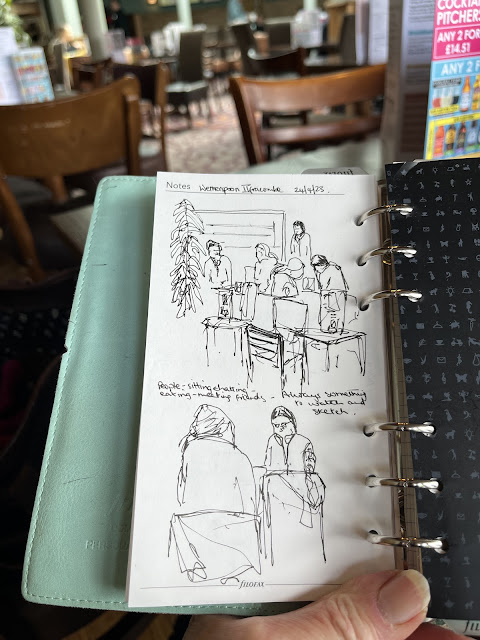 COCKTAIL
PITCHERS
ANY 2 FOR
£14.51
ANY 2 F
Notes Wetherspoon Ilfracombe 24/9/23.
People - sitting chatting -
eating - meeting friends - Always something
to watch and
sketch.
filofax